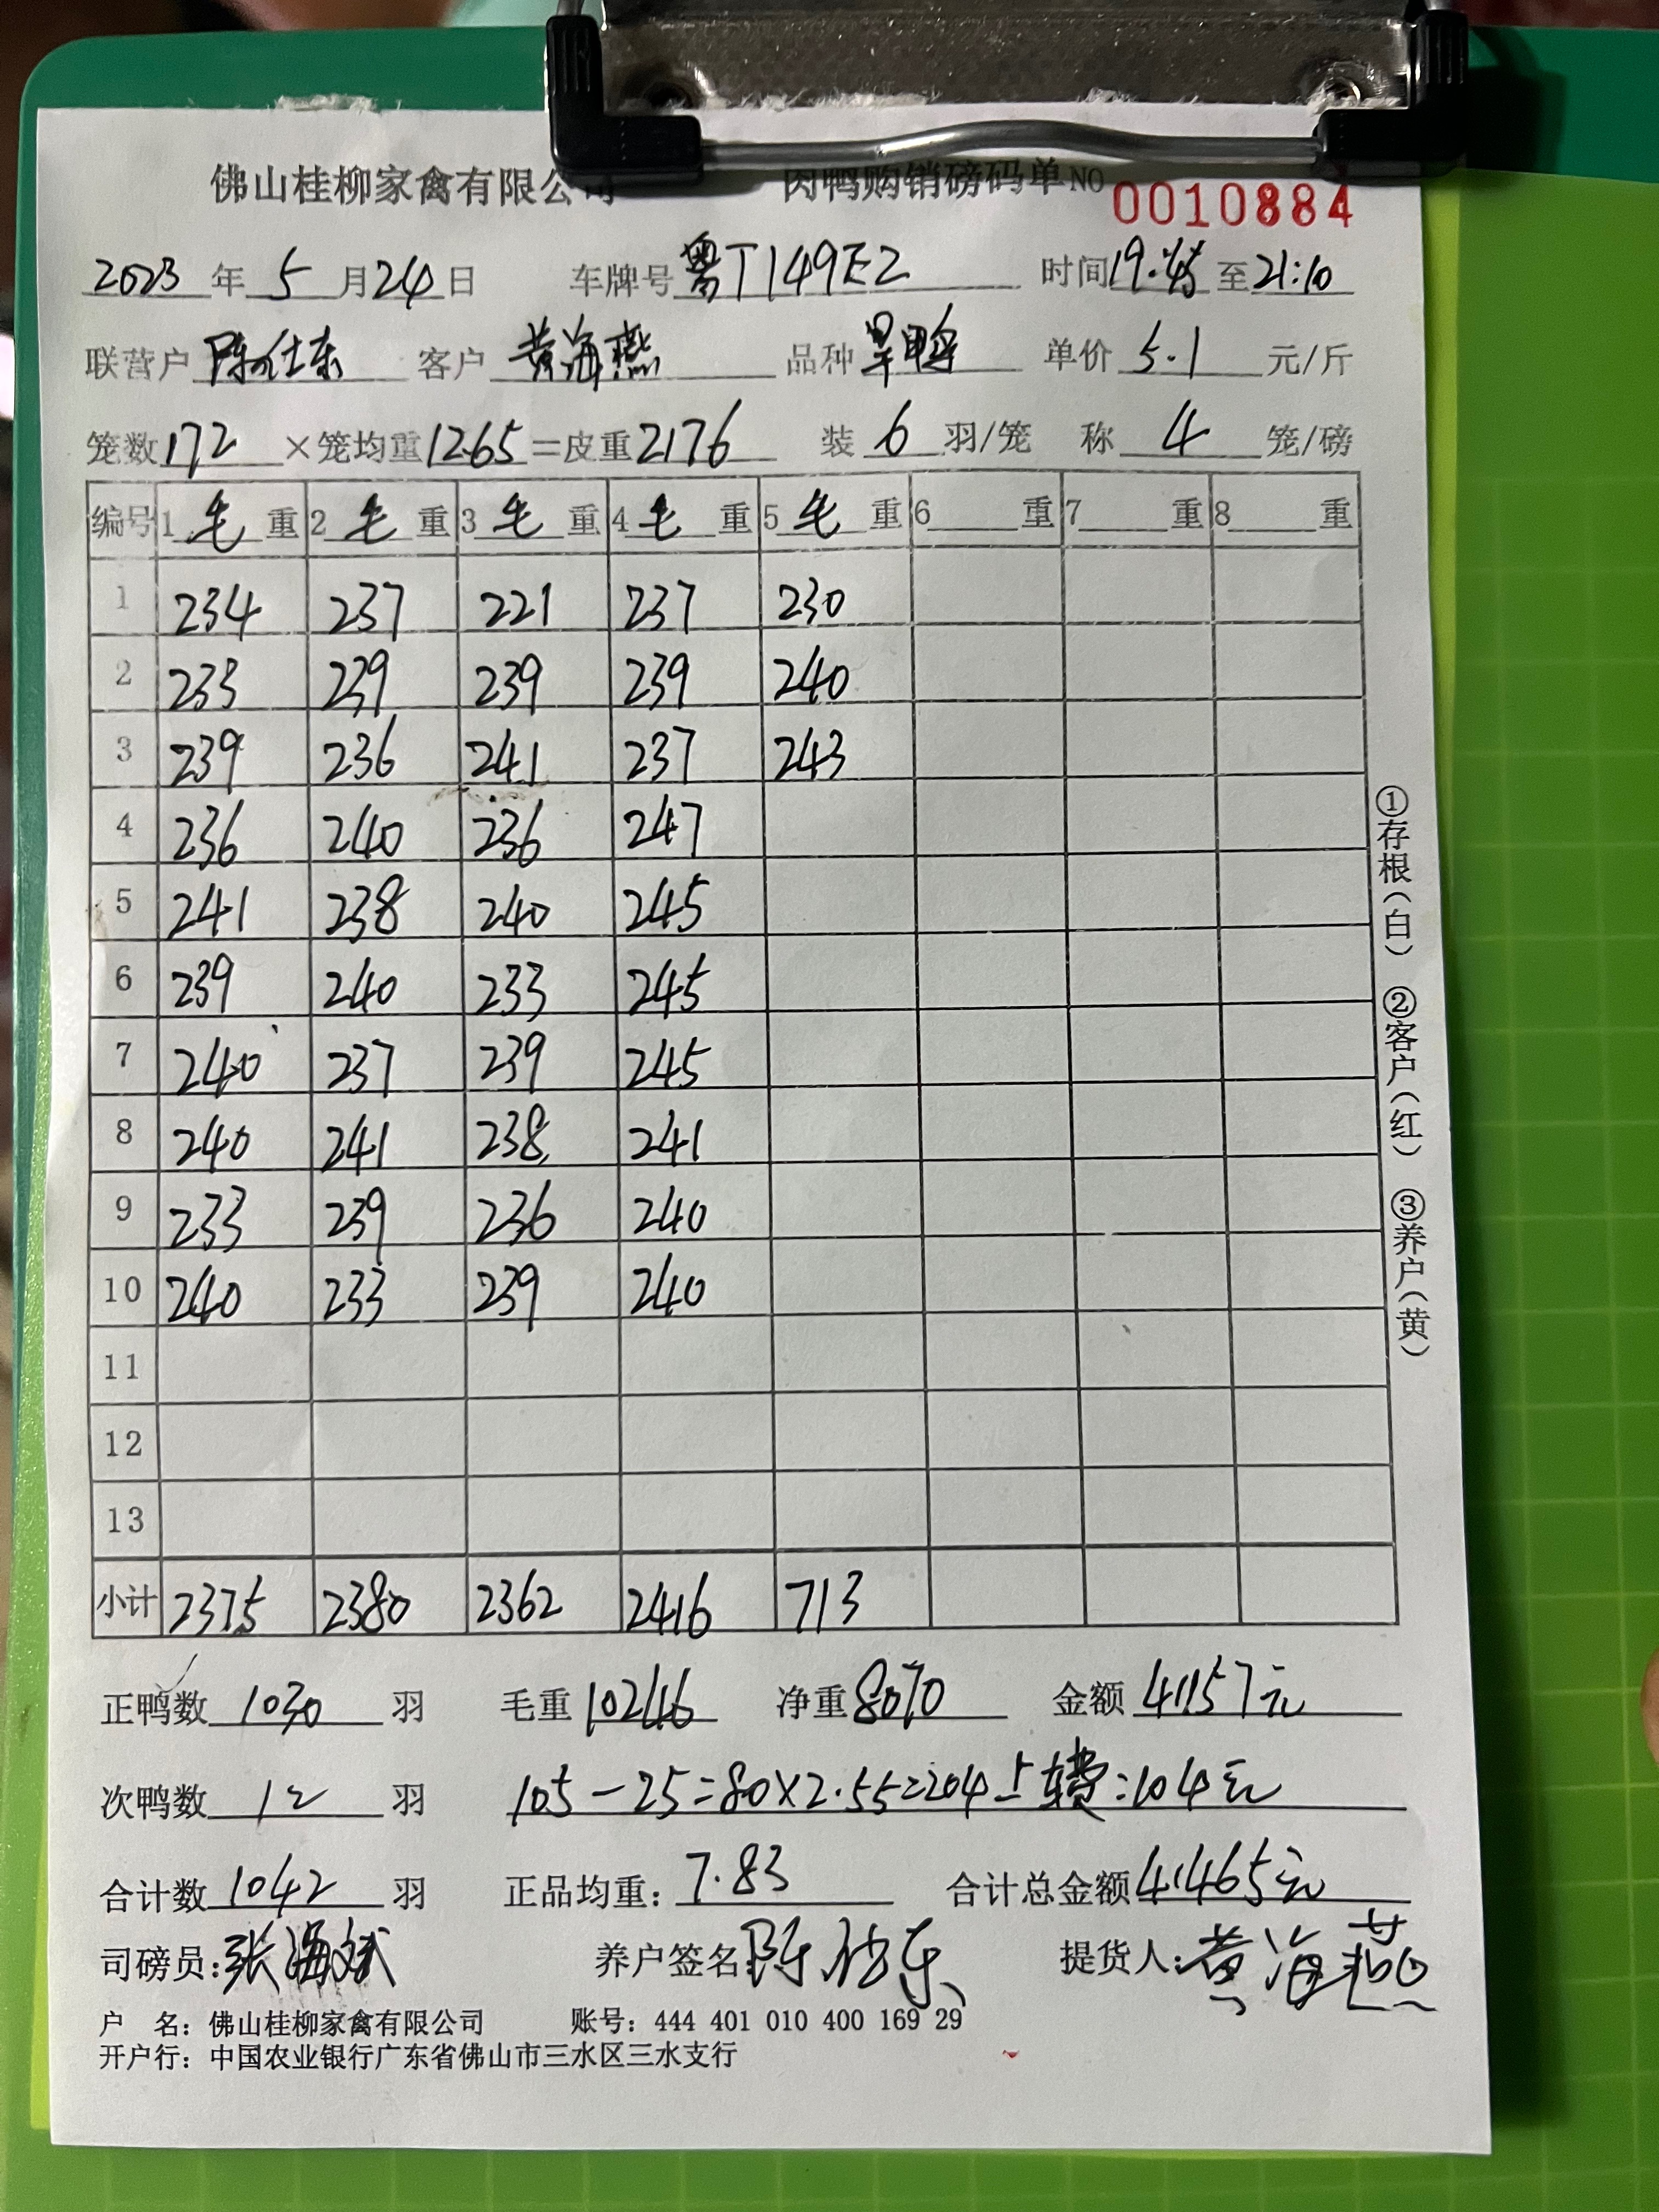 佛山桂柳家禽有限公司 肉鸭购销磅码单 NO 0010884
2023 年 5 月 24 日 车牌号 粤T149E2 时间 19:45 至 21:10
联营户 陈仕东 客户 黄海燕 品种 旱鸭 单价 5.1 元/斤
笼数 172 ×笼均重 12.65 =皮重 2176 装 6 羽/笼 称 4 笼/磅
编号 1 毛 重 2 毛 重 3 毛 重 4 毛 重 5 毛 重 6 重 7 重 8 重
1 234 237 221 237 230
2 233 239 239 239 240
3 239 236 241 237 243
4 236 240 236 247
5 241 238 240 245
6 239 240 233 245
7 240 237 239 245
8 240 241 238 241
9 233 239 236 240
10 240 233 239 240
11
12
13
小计 2375 2380 2362 2416 713
正鸭数 1030 羽 毛重 10246 净重 8070 金额 41157元
次鸭数 12 羽 105-25=80×2.55=204 上车费:104元
合计数 1042 羽 正品均重: 7.83 合计总金额 41465元
司磅员: 张海斌 养户签名 陈仕东 提货人: 黄海燕
户 名: 佛山桂柳家禽有限公司 账号: 444 401 010 400 169 29
开户行: 中国农业银行广东省佛山市三水区三水支行
①存根(白) ②客户(红) ③养户(黄)